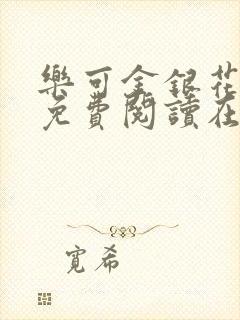 樂可金銀花
免費閱讀在
寬希